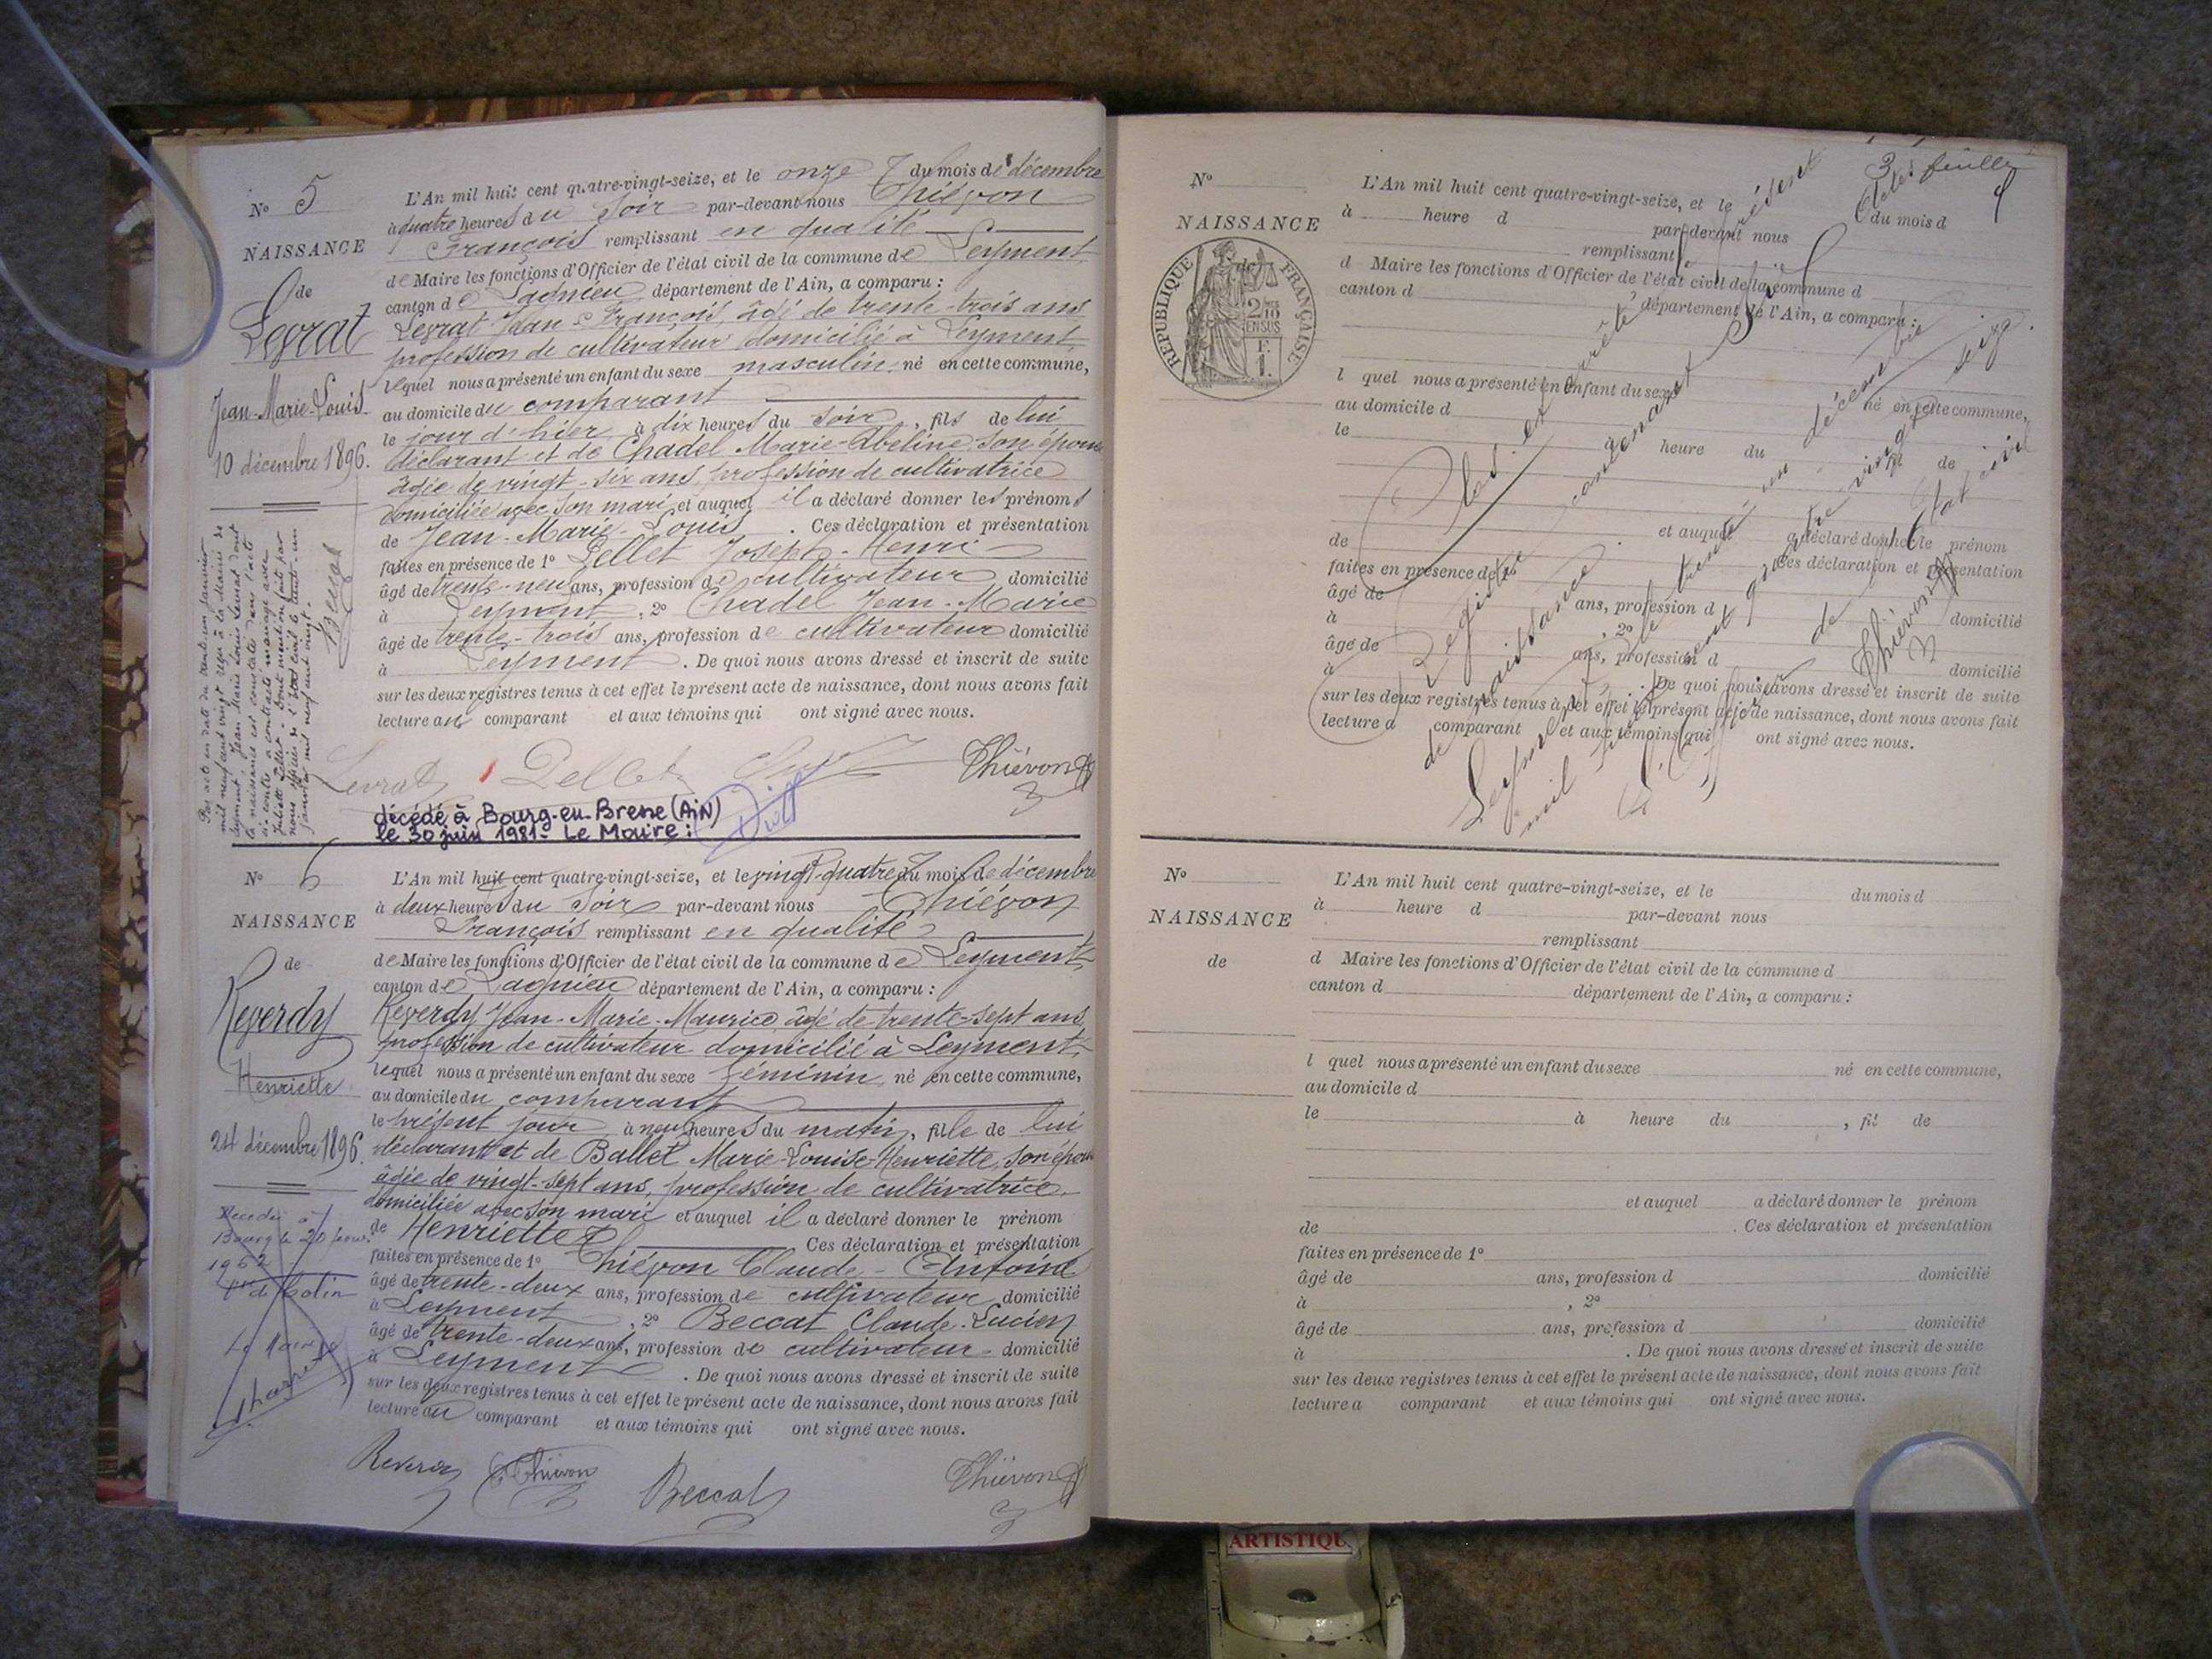 N° 5
NAISSANCE
de
Levrat
Jean-Marie-Louis
10 décembre 1896.
Par acte en date du trente-un janvier
mil neuf cent vingt reçu à la Mairie de
Leyment, Jean Marie Louis Levrat dont
la naissance est constatée dans l'acte
ci-contre a contracté mariage avec
Juliette Pellet. Dont mention faite par
nous officier de l'état civil le trente-un
janvier mil neuf cent vingt.
Beccat
L'An mil huit cent quatre-vingt-seize, et le onze du mois de décembre
à quatre heures du soir par-devant nous Thiévon
François remplissant en qualité
de Maire les fonctions d'Officier de l'état civil de la commune de Leyment,
canton de Lagnieu département de l'Ain, a comparu :
Levrat Jean-François, âgé de trente-trois ans
profession de cultivateur domicilié à Leyment,
lequel nous a présenté un enfant du sexe masculin, né en cette commune,
au domicile du comparant
le jour d'hier à dix heures du soir, fils de lui
déclarant et de Chadel Marie-Abeline, son épouse
âgée de vingt-six ans, profession de cultivatrice
domiciliée avec son mari et auquel il a déclaré donner les prénoms
de Jean-Marie-Louis. Ces déclaration et présentation
faites en présence de 1° Pellet Joseph-Henri
âgé de trente-neuf ans, profession de cultivateur domicilié
à Leyment, 2° Chadel Jean-Marie
âgé de trente-trois ans, profession de cultivateur domicilié
à Leyment. De quoi nous avons dressé et inscrit de suite
sur les deux registres tenus à cet effet le présent acte de naissance, dont nous avons fait
lecture au comparant et aux témoins qui ont signé avec nous.
Levrat Pellet Thiévon
décédé à Bourg-en-Bresse (AIN)
le 30 juin 1981 - Le Maire :
N° 6
NAISSANCE
de
Reverdy
Henriette
24 décembre 1896.
Décédée à
Bourg le 20
1962
Le Maire
L'An mil huit cent quatre-vingt-seize, et le vingt-quatre du mois de décembre
à deux heures du soir par-devant nous Thiévon
François remplissant en qualité
de Maire les fonctions d'Officier de l'état civil de la commune de Leyment,
canton de Lagnieu département de l'Ain, a comparu :
Reverdy Jean-Marie-Maurice, âgé de trente-sept ans
profession de cultivateur domicilié à Leyment,
lequel nous a présenté un enfant du sexe féminin, né en cette commune,
au domicile du comparant
le présent jour à neuf heures du matin, fille de lui
déclarant et de Ballet Marie-Louise-Henriette, son épouse
âgée de vingt-sept ans, profession de cultivatrice,
domiciliée avec son mari et auquel il a déclaré donner le prénom
de Henriette Ces déclaration et présentation
faites en présence de 1° Thiévon Claude-Antoine
âgé de trente-deux ans, profession de cultivateur domicilié
à Leyment, 2° Beccat Claude-Lucien
âgé de trente-deux ans, profession de cultivateur domicilié
à Leyment. De quoi nous avons dressé et inscrit de suite
sur les deux registres tenus à cet effet le présent acte de naissance, dont nous avons fait
lecture au comparant et aux témoins qui ont signé avec nous.
Reverdy C. Thiévon Beccat Thiévon
3 feuillet
N°
NAISSANCE
RÉPUBLIQUE FRANÇAISE
2/10 EN SUS
F. 1.
L'An mil huit cent quatre-vingt-seize, et le du mois d
à heure d par-devant nous
remplissant
d Maire les fonctions d'Officier de l'état civil de la commune d
canton d département de l'Ain, a comparu :
l quel nous a présenté un enfant du sexe né en cette commune,
au domicile d
le à heure du , fil de
et auquel a déclaré donner le prénom
de . Ces déclaration et présentation
faites en présence de 1°
âgé de ans, profession d domicilié
à , 2°
âgé de ans, profession d domicilié
à . De quoi nous avons dressé et inscrit de suite
sur les deux registres tenus à cet effet le présent acte de naissance, dont nous avons fait
lecture a comparant et aux témoins qui ont signé avec nous.
Clos et arrêté le présent
Registre contenant six actes
de naissance
Leyment, le trente-un décembre
mil huit cent quatre-vingt seize.
L'Officier de l'Etat civil
Thiévon
N°
NAISSANCE
de
L'An mil huit cent quatre-vingt-seize, et le du mois d
à heure d par-devant nous
remplissant
d Maire les fonctions d'Officier de l'état civil de la commune d
canton d département de l'Ain, a comparu :
l quel nous a présenté un enfant du sexe né en cette commune,
au domicile d
le à heure du , fil de
et auquel a déclaré donner le prénom
de . Ces déclaration et présentation
faites en présence de 1°
âgé de ans, profession d domicilié
à , 2°
âgé de ans, profession d domicilié
à . De quoi nous avons dressé et inscrit de suite
sur les deux registres tenus à cet effet le présent acte de naissance, dont nous avons fait
lecture a comparant et aux témoins qui ont signé avec nous.
ARTISTIQU